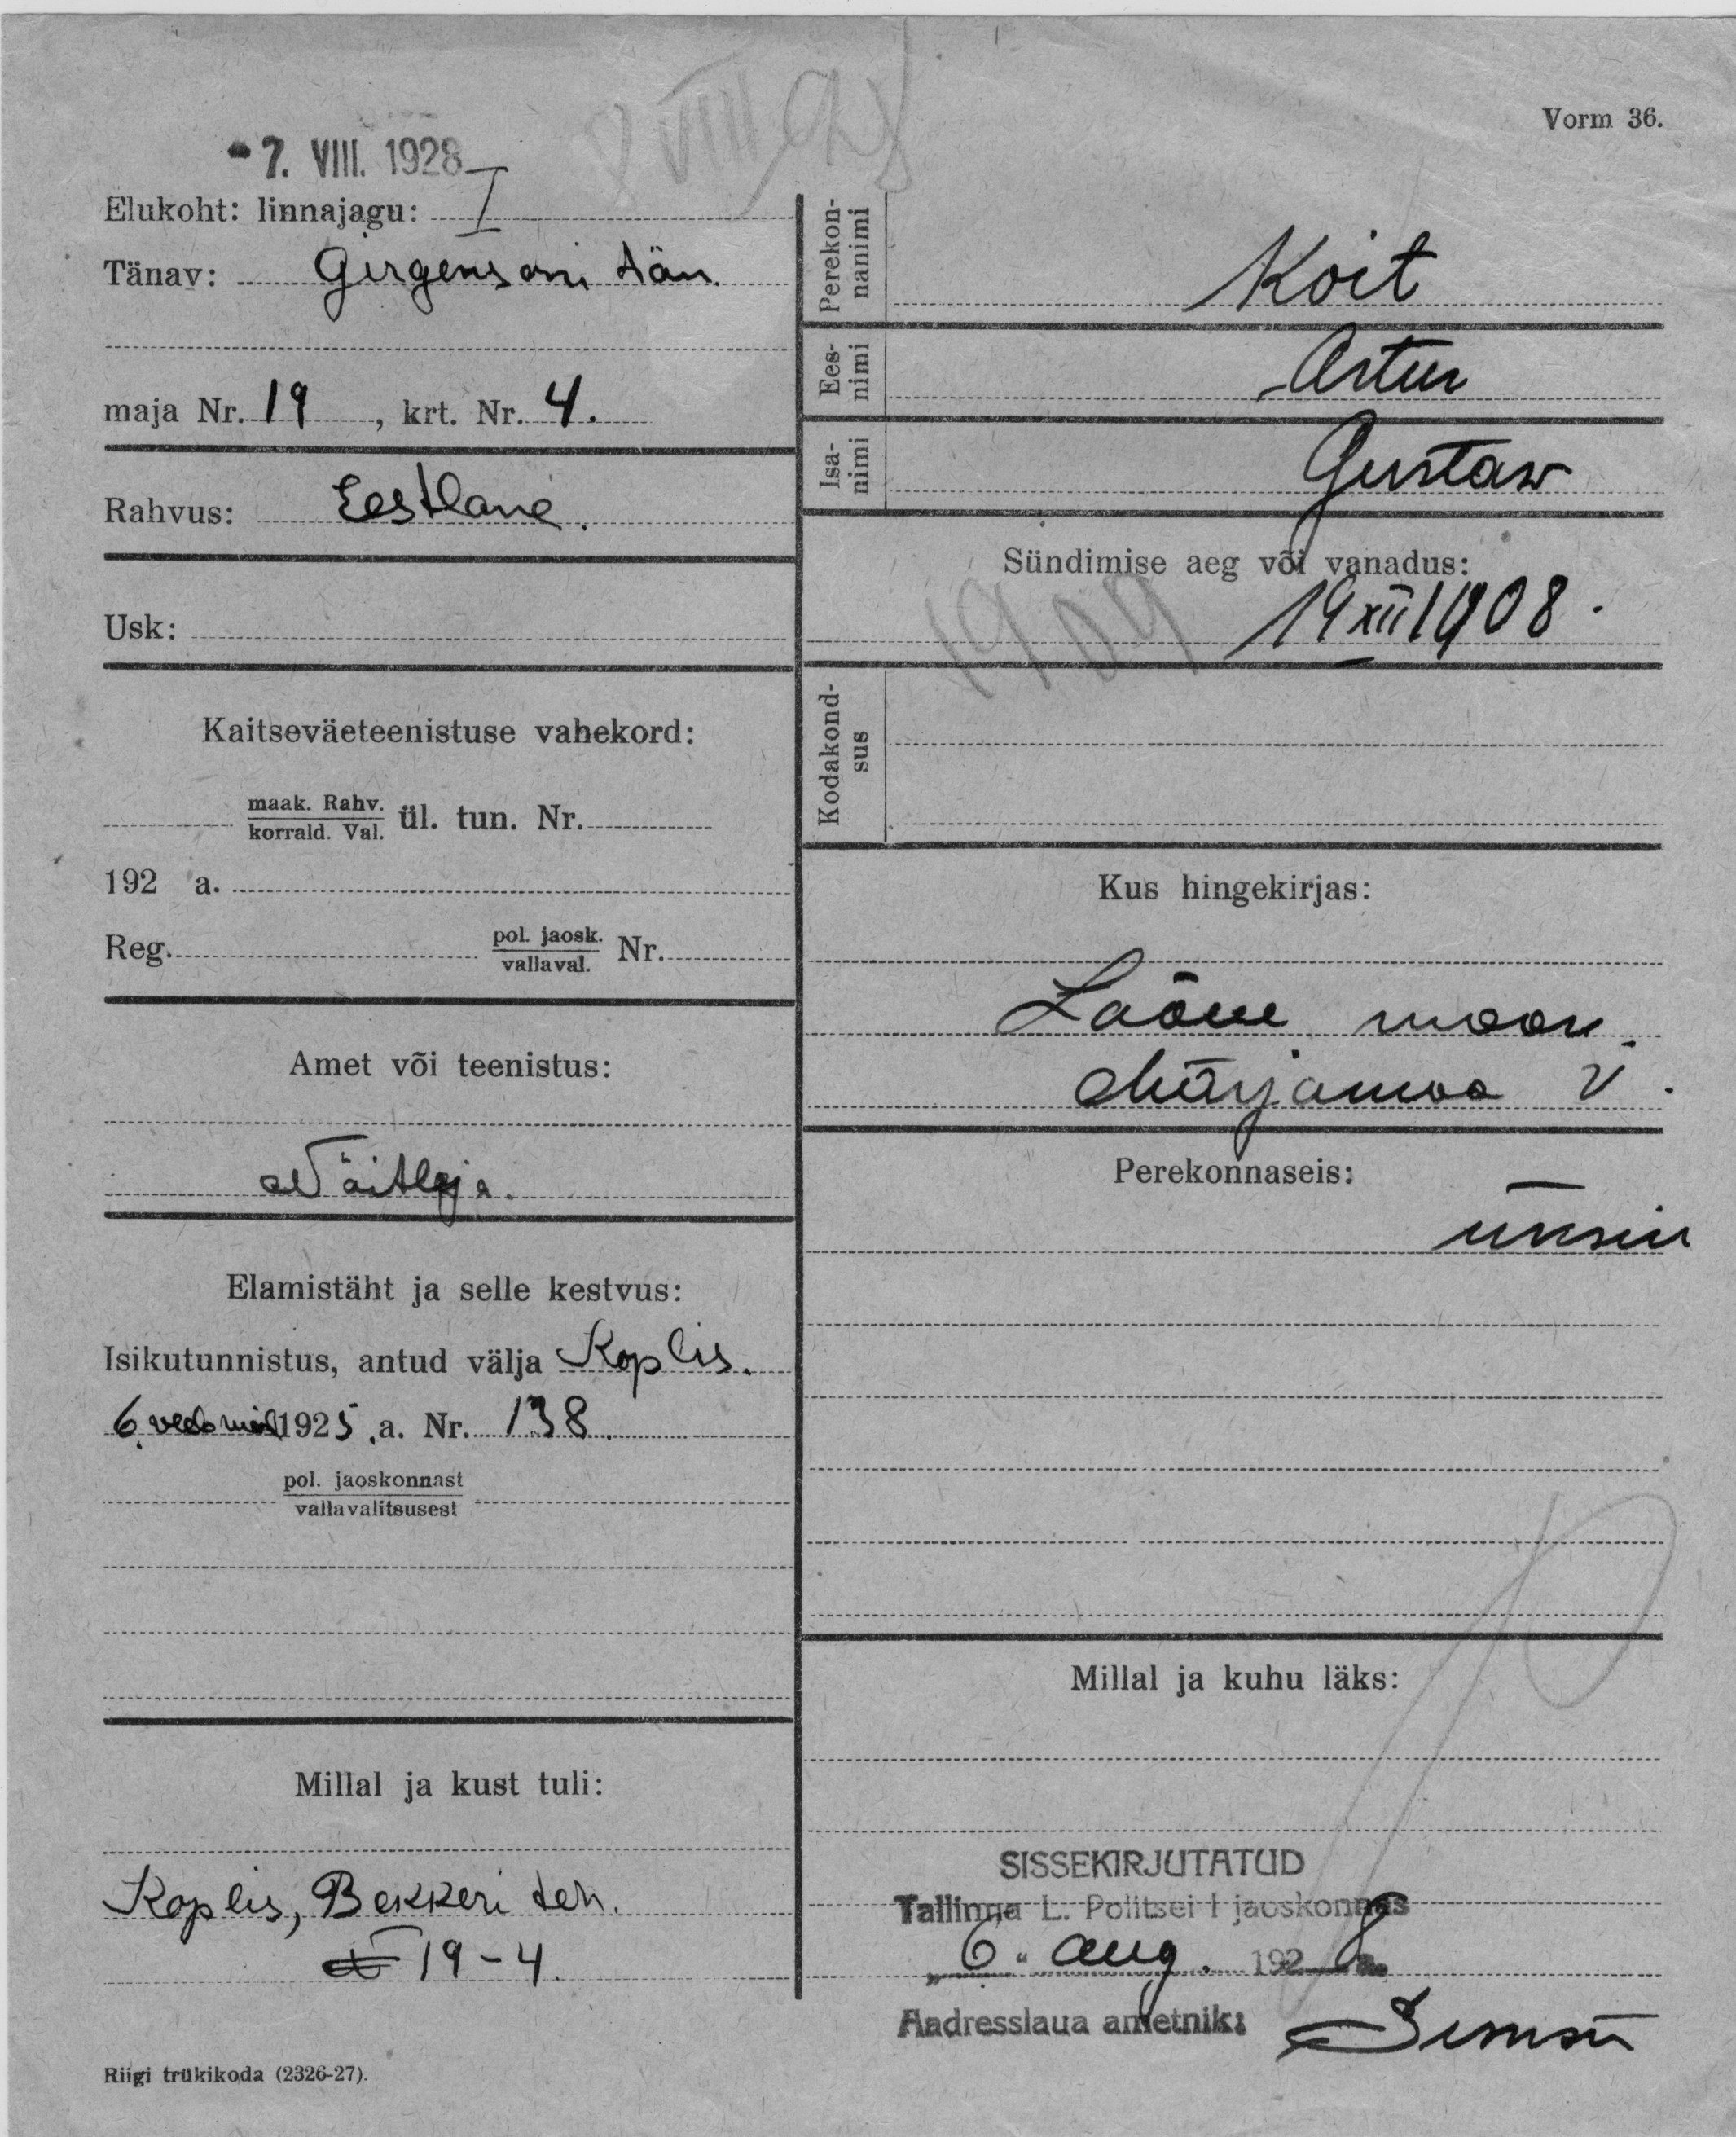 Vorm 36.
8 VIII 28
- 7. VIII. 1928
Elukoht: linnajagu: I
Tänav: Girgensoni tän.
maja Nr. 19 , krt. Nr. 4.
Rahvus: Eestlane.
Usk:
Kaitseväeteenistuse vahekord:
maak. Rahv.
korrald. Val. ül. tun. Nr.
192 a.
Reg. pol. jaosk. Nr.
vallaval.
Amet või teenistus:
Näitleja.
Elamistäht ja selle kestvus:
Isikutunnistus, antud välja Koplis.
6. 1925 .a. Nr. 138.
pol. jaoskonnast
vallavalitsusest
Millal ja kust tuli:
Koplis, Bekkeri teh.
19-4.
Riigi trükikoda (2326-27).
Perekon-
nanimi
Koit
Ees-
nimi
Artur
Isa-
nimi
Gustaw
Sündimise aeg või vanadus:
1909
19 XII 1908.
Kodakond-
sus
Kus hingekirjas:
Lääne maak.
Märjamaa v.
Perekonnaseis:
üksik
Millal ja kuhu läks:
SISSEKIRJUTATUD
Tallinna L. Politsei I jaoskonnas
„6" aug. 1928 a.
Aadresslaua ametnik: